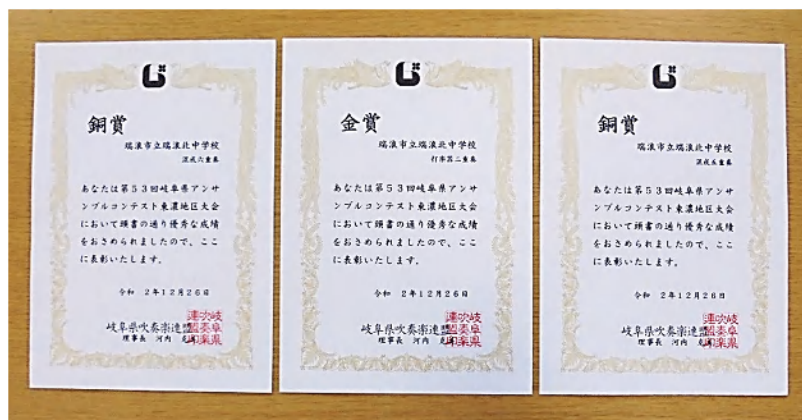 銅賞
瑞浪市立瑞浪北中学校
混成六重奏
あなたは第53回岐阜県アンサ
ンブルコンテスト東濃地区大会
において頭書の通り優秀な成績
をおさめられましたので、ここ
に表彰いたします。
令和 2年12月26日
岐阜県吹奏楽連盟
理事長 河内
金賞
瑞浪市立瑞浪北中学校
打楽器二重奏
あなたは第53回岐阜県アンサ
ンブルコンテスト東濃地区大会
において頭書の通り優秀な成績
をおさめられましたので、ここ
に表彰いたします。
令和 2年12月26日
岐阜県吹奏楽連盟
理事長 河内
銅賞
瑞浪市立瑞浪北中学校
混成五重奏
あなたは第53回岐阜県アンサ
ンブルコンテスト東濃地区大会
において頭書の通り優秀な成績
をおさめられましたので、ここ
に表彰いたします。
令和 2年12月26日
岐阜県吹奏楽連盟
理事長 河内